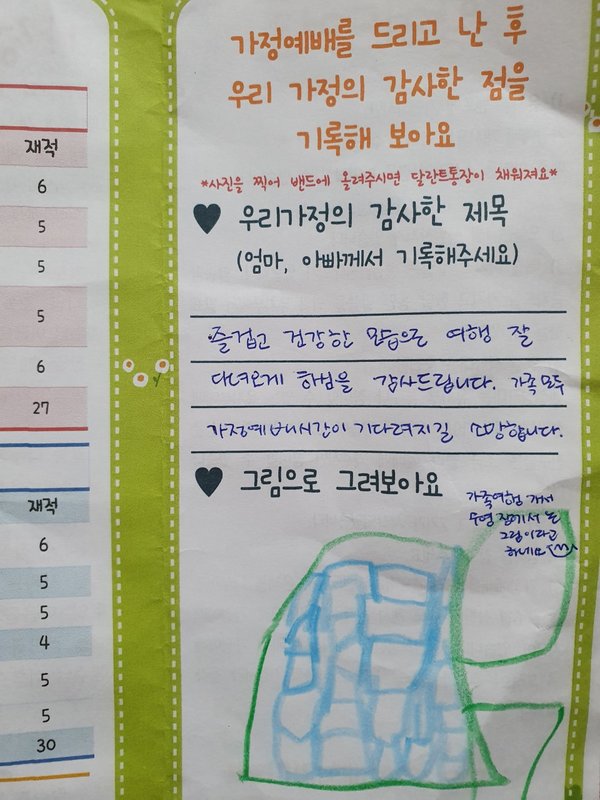 재적
6
5
5
5
6
27
재적
6
5
5
4
5
5
30
가정예배를 드리고 난 후
우리 가정의 감사한 점을
기록해 보아요
*사진을 찍어 밴드에 올려주시면 달란트통장이 채워져요*
♥ 우리가정의 감사한 제목
(엄마, 아빠께서 기록해주세요)
즐겁고 건강한 모습으로 여행 잘
다녀오게 하심을 감사드립니다. 가족 모두
가정예배시간이 기다려지길 소망합니다.
♥ 그림으로 그려보아요
가족여행 가서
수영장에서 논
그림이라고
하네요